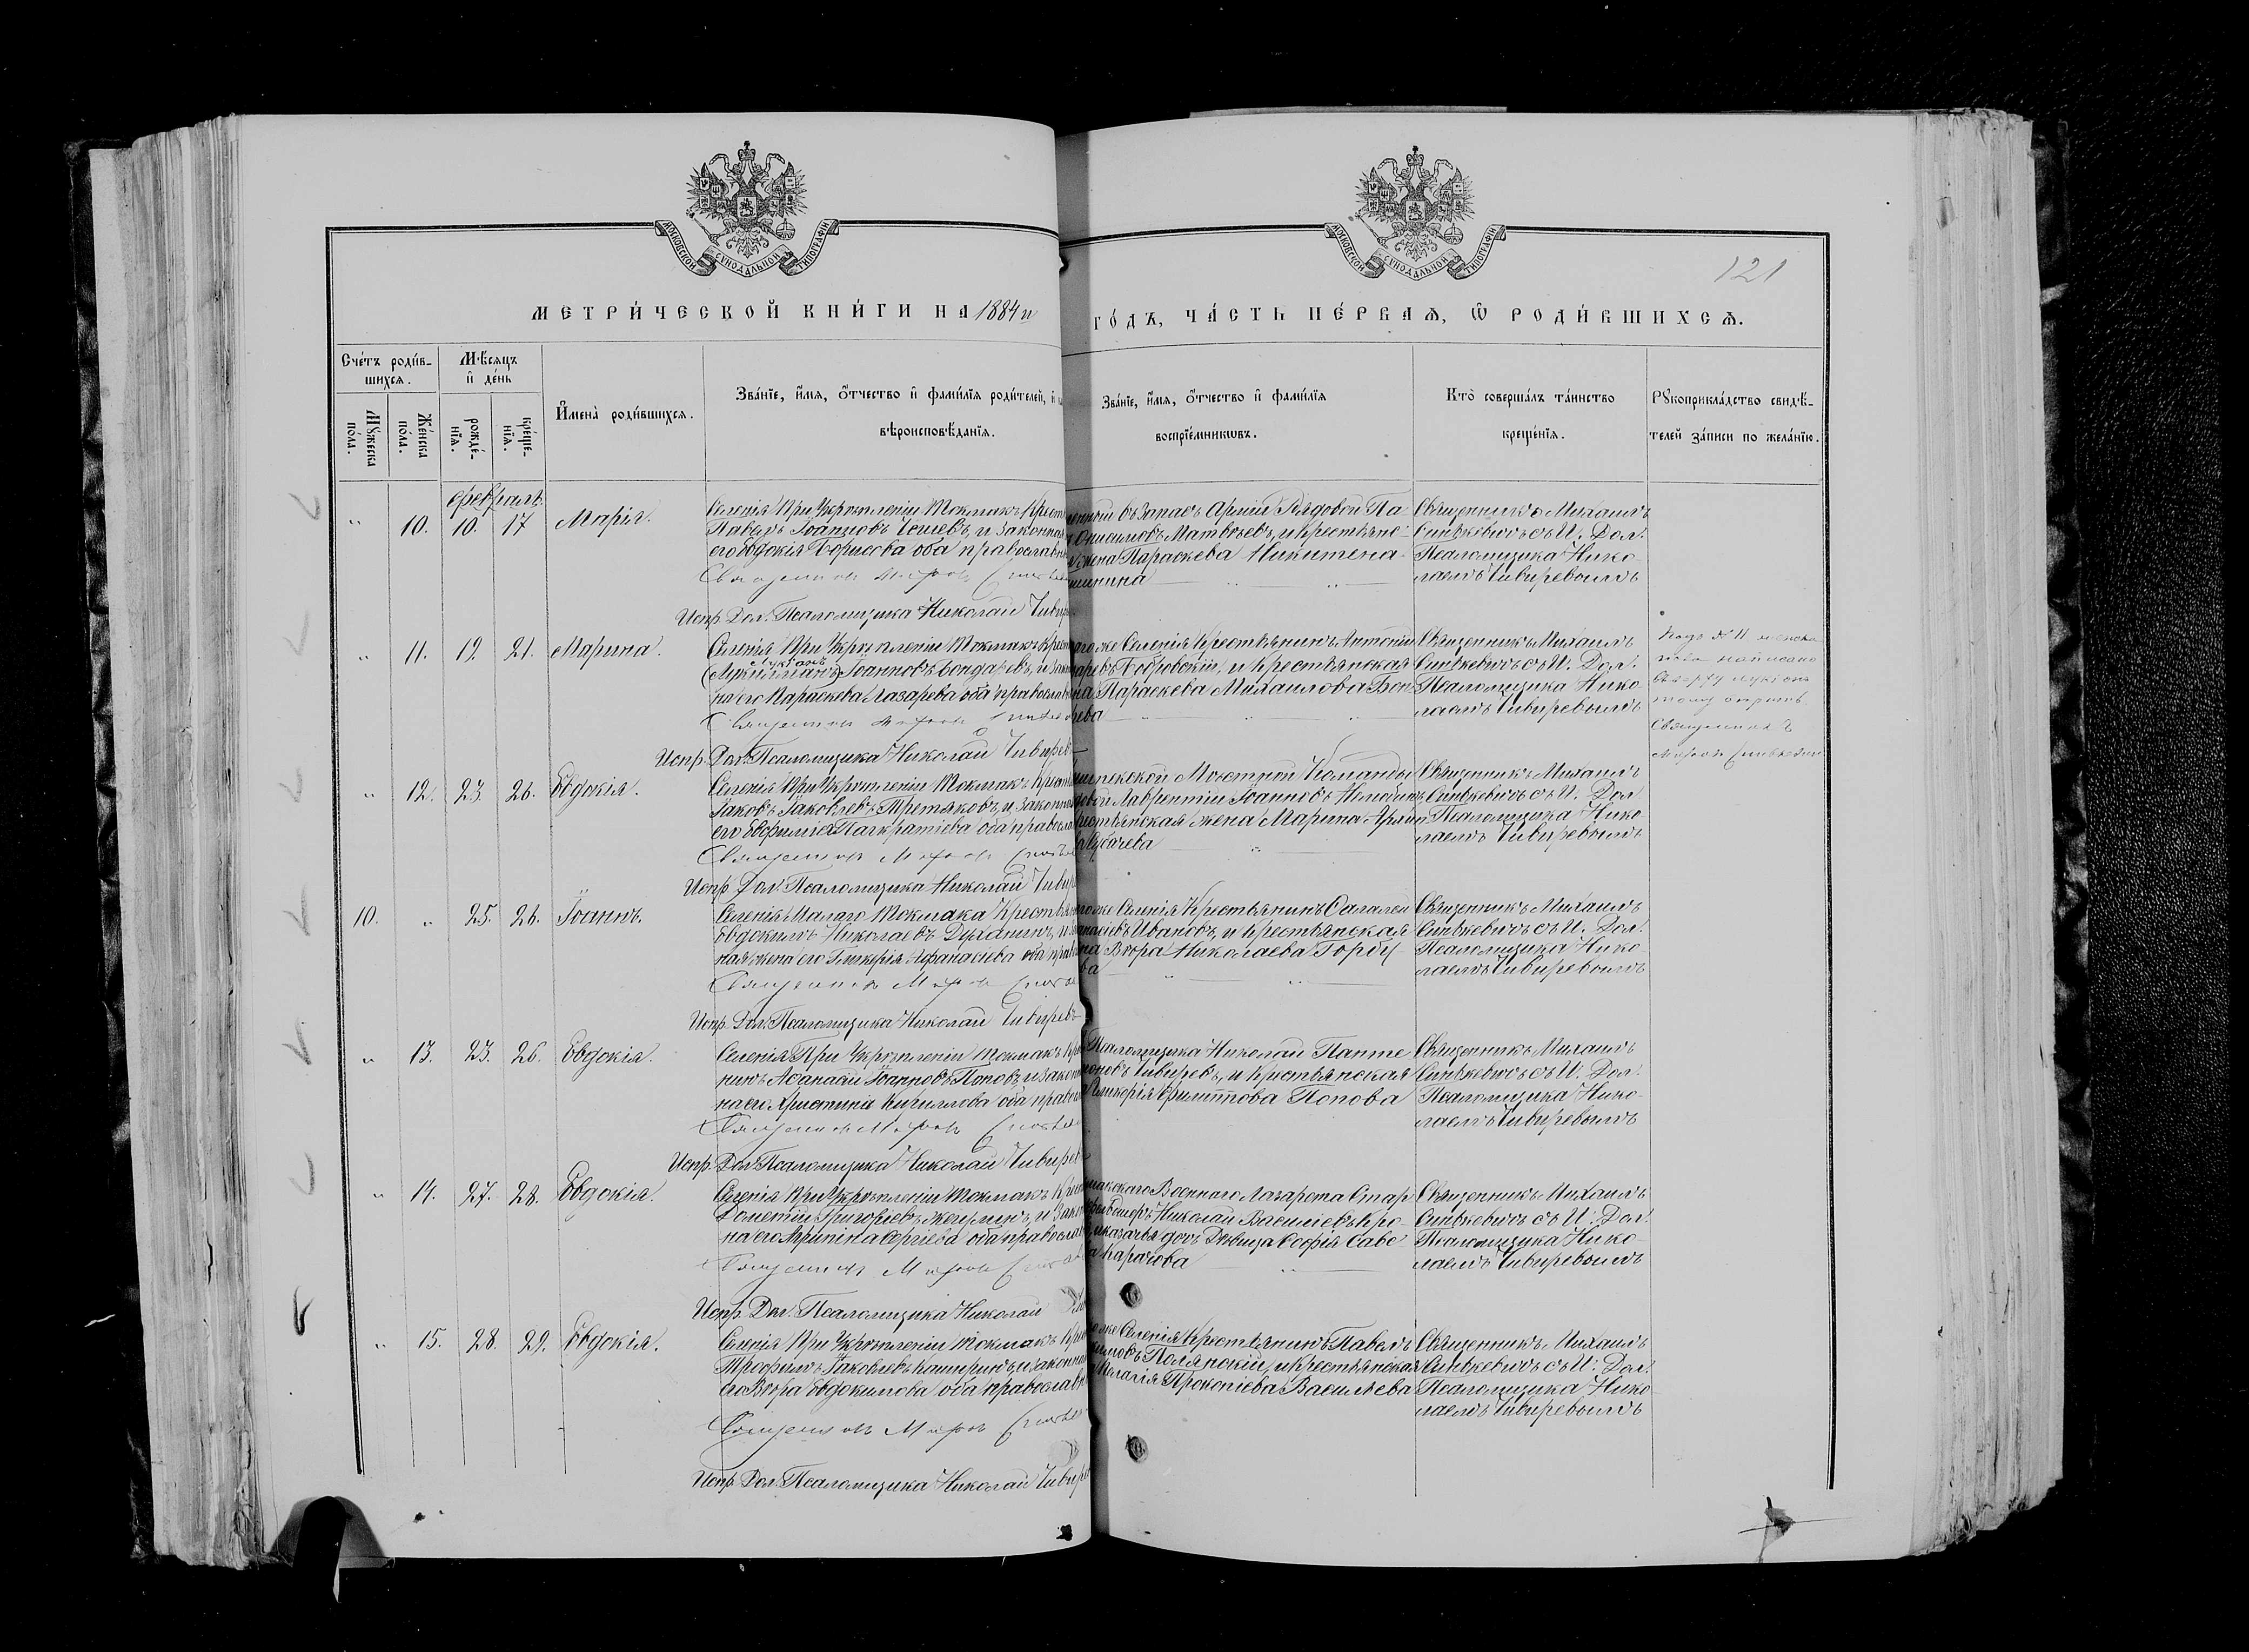 МОСКОВСКОЙ СУНОДАЛЬНОЙ ТИПОГРАФІИ
МОСКОВСКОЙ СУНОДАЛЬНОЙ ТИПОГРАФІИ
121
МЕТРИ́ЧЕСКОЙ КНИ́ГИ НА 1884 й
ГО́ДЪ, ЧА́СТЬ ПЕ́РВАѦ, Ѡ҆ РОДИ́ВШИХСѦ.
Сче́тъ роди́в-
шихсѧ.
Мꙋ́жеска
по́ла.
Же́нска
по́ла.
Мѣ́сяцъ
и҆ де́нь
рожде́-
нїѧ.
креще́-
нїѧ.
И҆мена̀ роди́вшихсѧ.
Зва́нїе, и҆́мѧ, ѻ҆́тчество и҆ фами́лїѧ роди́телей, и҆
вѣроисповѣ́данїѧ.
Зва́нїе, и҆́мѧ, ѻ҆́тчество и҆ фами́лїѧ
воспрїе́мникωвъ.
Кто̀ соверша́лъ та́инство
креще́нїѧ.
Рꙋкоприкла́дство свидѣ́-
телей за́писи по жела́нїю.
Февраль.
" 10. 10. 17 Марія.
Селенія При Укрѣпленіи Токмакъ Крест
Павелъ Іоанновъ и законная
его Евдокія Борисова оба православн
Священникъ
Испр. Дол. Псаломщика Николай Чивир
въ Запасъ Арміи Рядовой Па-
Онисимовъ Матвѣевъ, и крестьянс-
жена Параскева Никитена
Священникъ Михаилъ
Синѣкевичъ съ И. Дол.
Псаломщика Нико-
лаемъ Чивиревымъ
" 11. 19. 21. Марина.
Селенія При Укрѣпленіи Токмакъ Крест
Лукіанъ
Іоанновъ Бондаревъ, и закон
на его Параскева Лазарева оба православн
Священникъ
Испр. Дол. Псаломщика Николай Чивиревъ
гоже Селенія Крестьянинъ Антоній
Бобровскій, и крестьянская
на Параскева Михаилова Бон-
рева
Священникъ Михаилъ
Синѣкевичъ съ И. Дол.
Псаломщика Нико-
лаемъ Чивиревымъ
Подъ № 11 женска
пола написано
сверху Лукіанъ
тому вѣрить
Священникъ
" 12. 23. 26. Евдокія.
Селенія При Укрѣпленіи Токмакъ Крест
Іаковъ Іаковлевъ Третьяковъ, и законная
его Евфимія Панкратіева оба правосла
Священникъ
Испр. Дол. Псаломщика Николай Чивир
Мѣстной Команды
Лаврентій Іоанновъ
крестьянская жена Марина
Священникъ Михаилъ
Синѣкевичъ съ И. Дол
Псаломщика Нико-
лаемъ Чивиревымъ
10. " 25. 26. Іоаннъ.
Селенія Малаго Токмака Крестьян
Евдокимъ Николаевъ Духанинъ, и
ная жена его Гликерія Афанасіева оба прав
Священникъ
Испр. Дол. Псаломщика Николай Чивиревъ
гоже Селенія Крестьянинъ Савелій
Ивановъ, и крестьянская
на Вѣра Николаева Горбу-
ва
Священникъ Михаилъ
Синѣкевичъ съ И. Дол.
Псаломщика Нико-
лаемъ Чивиревымъ
" 13. 23. 26. Евдокія.
Селенія При Укрѣпленіи Токмакъ Кре
нинъ Афанасій Іоанновъ Поповъ, и закон
на его Христина Кириллова оба правосл
Священникъ
Испр. Дол. Псаломщика Николай Чивирев
Псаломщика Николай Панте
Чивиревъ, и крестьянская
Гликерія Филиппова Попова
Священникъ Михаилъ
Синѣкевичъ съ И. Дол.
Псаломщика Нико-
лаемъ Чивиревымъ
" 14. 27. 28. Евдокія.
Селенія При Укрѣпленіи Токмакъ Крест
Дометій Григорьевъ и закон
на его Ирина Сергіева оба правосла
Священникъ
Испр. Дол. Псаломщика Николай
макскаго Военнаго Лазарета Стар
Николай Василіевъ Кро-
казачья дочь Дѣвица Софія Саве
Карачова
Священникъ Михаилъ
Синѣкевичъ съ И. Дол.
Псаломщика Нико-
лаемъ Чивиревымъ
" 15. 28. 29. Евдокія.
Селенія При Укрѣпленіи Токмакъ Кре
Трофимъ Іаковлевъ Каширинъ и законная
его Вѣра Евдокимова оба православн
Священникъ
Испр. Дол. Псаломщика Николай Чивир
же Селенія Крестьянинъ Павелъ
Полянскій, и крестьянская
Пелагія Прокопіева Василѣева
Священникъ Михаилъ
Синѣкевичъ съ И. Дол.
Псаломщика Нико
лаемъ Чивиревымъ